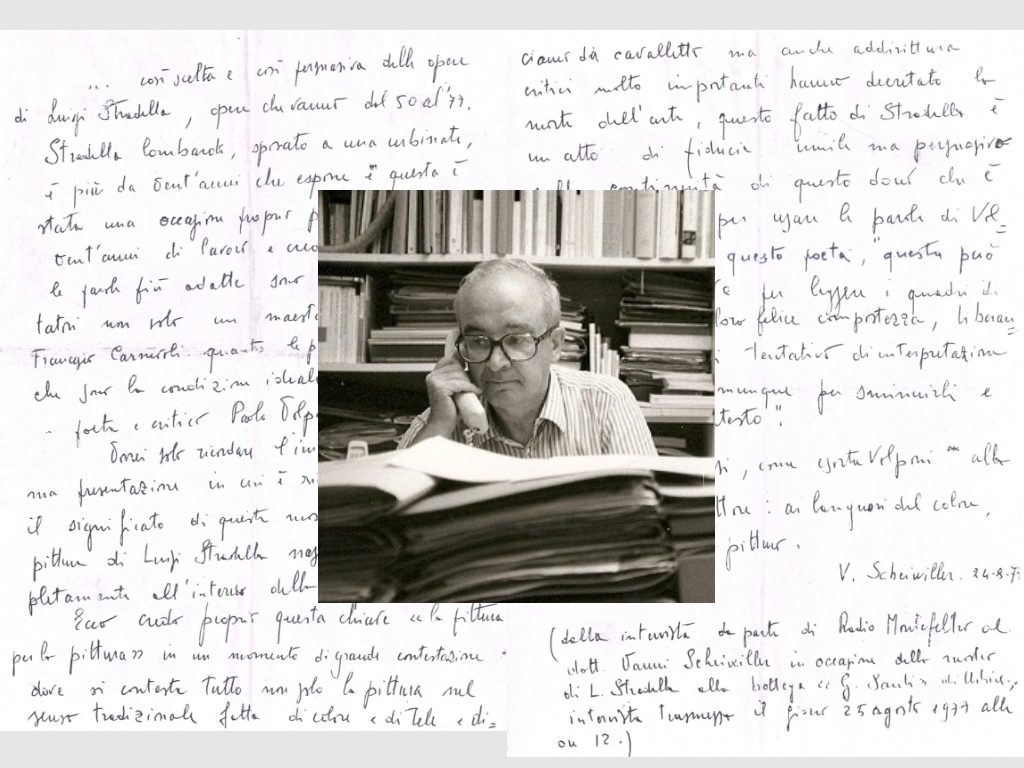 ... così scelta e così persuasiva delle opere
di Luigi Stradella, opere che vanno dal 50 al '77.
Stradella lombardo, sposato a una urbinate,
è più da vent'anni che espone e questa è
stata una occasione proprio
vent'anni di lavoro e
le parole più adatte sono
tatori non solo un maestro
Francesco Carnevali quanto le
che sono la condizione ideale
poeta e critico Paolo
Vorrei solo ricordare
ma presentazione in cui è
il significato di questa
pittura di Luigi Stradella
pletamente all'interno della
Ecco credo proprio questa chiave «la pittura
per la pittura» in un momento di grande contestazione
dove si contesta tutto non solo la pittura nel
senso tradizionale fatta di colore e di tele e di=
ciamo da cavalletto ma anche addirittura
critici molto importanti hanno decretato la
morte dell'arte, questo fatto di Stradella è
un atto di fiducia umile ma persuasivo
continuità di questo dono che è
per usare le parole di Vol=
questo poeta, "questa può
per leggere i quadri di
loro felice compostezza, liberan=
tentativo di interpretazione
per sminuirli e
testo".
come esorta Volponi alla
ai languori del colore,
pittura.
V. Scheiwiller. 24.8.7
(dalla intervista da parte di Radio Montefeltro al
dott. Vanni Scheiwiller in occasione della mostra
di L. Stradella alla bottega « G. Santi» di Urbino.
intervista trasmessa il giorno 25 agosto 1977 alle
ore 12.)